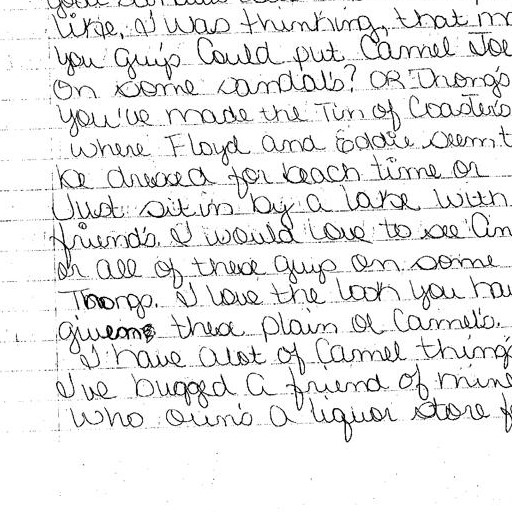 like, I was thinking, that m
you guy's could put Camel Joe
on some sandal's? OR Thong's
you've made the Tin of Coaster's
where Floyd and Eddie seem t
be dressed for beach time or
Just sit'in by a lake with
friend's. I would love to see an
or all of these guys on some
Thongs. I love the look you hav
given these plain ol Camel's.
I have alot of Camel thing's
I've bugged a friend of mine
who own's a liquor store f